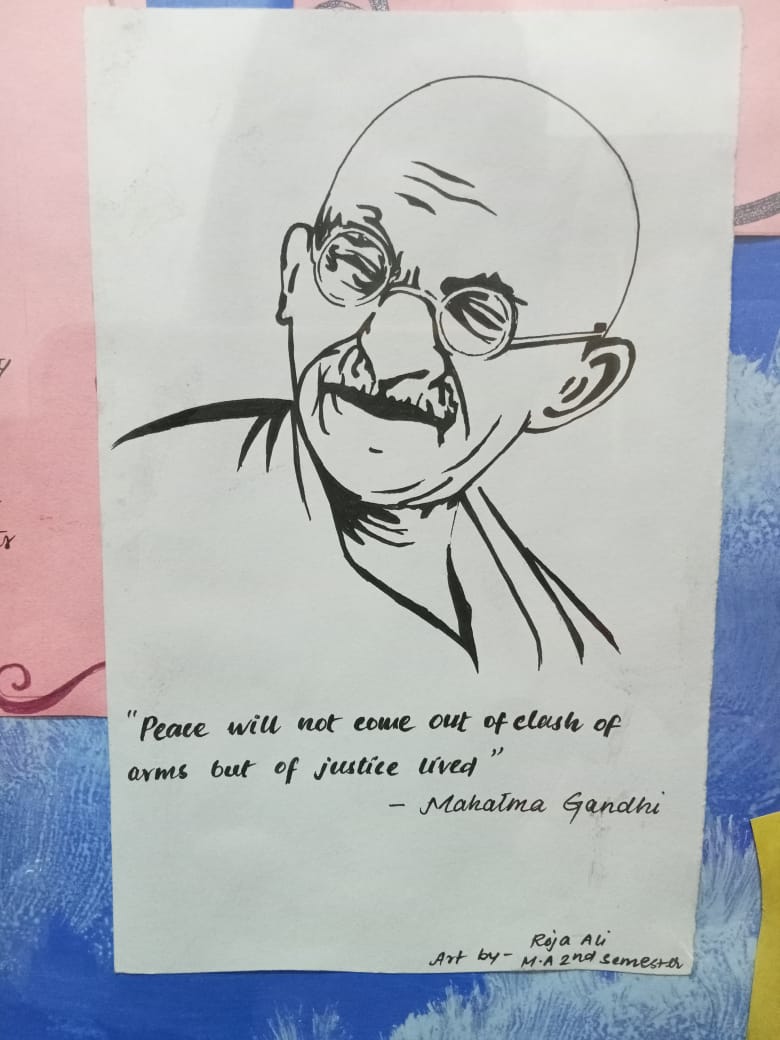 "Peace will not come out of clash of
arms but of justice lived"
- Mahatma Gandhi
Roja Ali
Art by- M.A 2nd semester